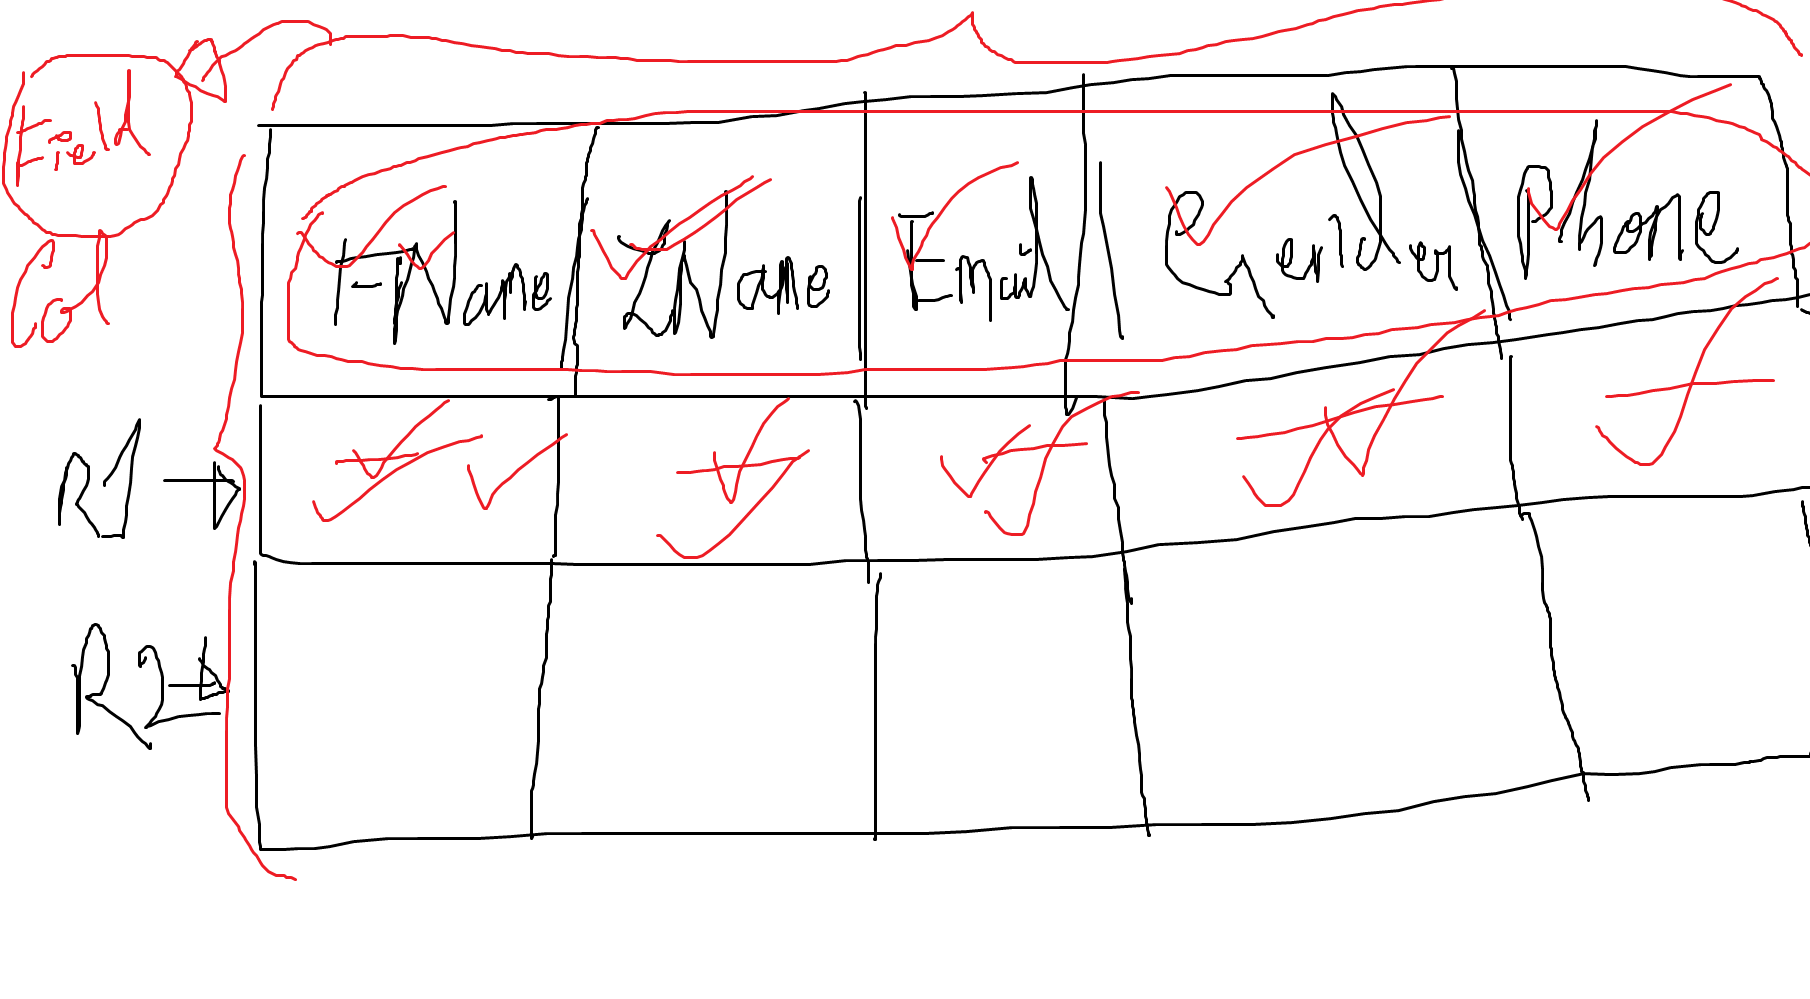 Field
Col
F-Name LName Email Gender Phone
R1
R2